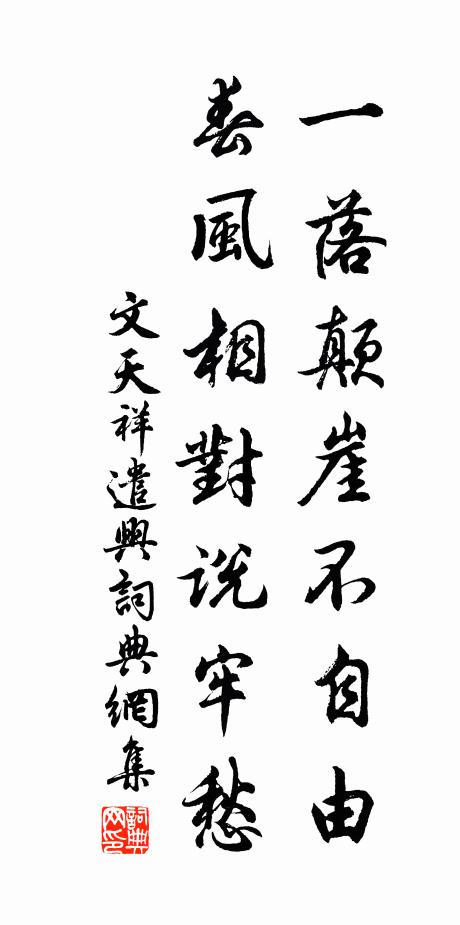 一落顛崖不自由
春風相對説牢愁
文天祥遣興詞典網集
詞典網印